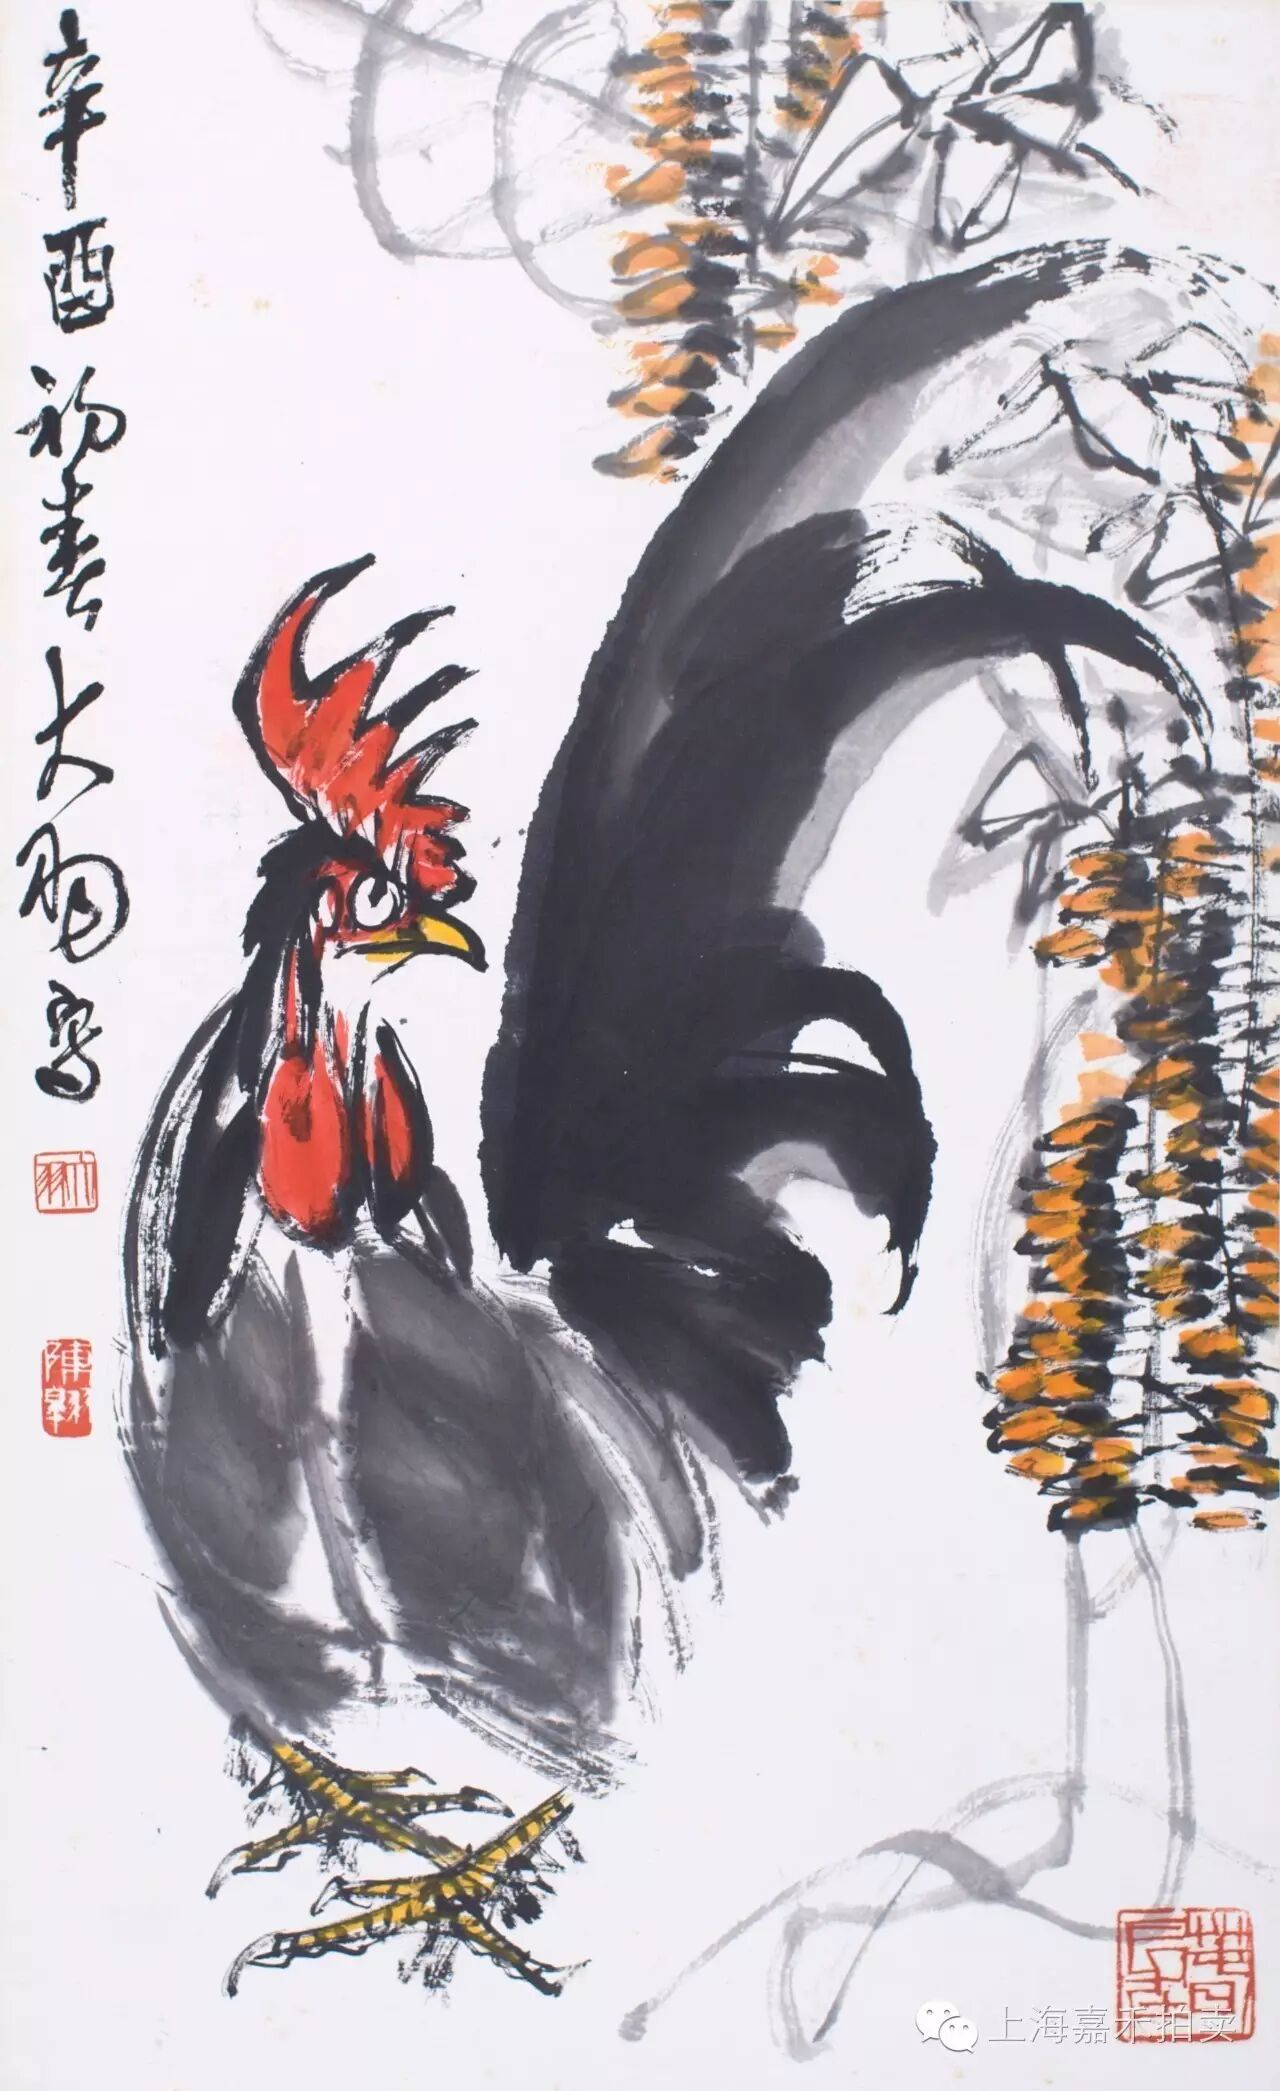 辛酉初春大羽写
大羽
陳翱
上海嘉禾拍卖